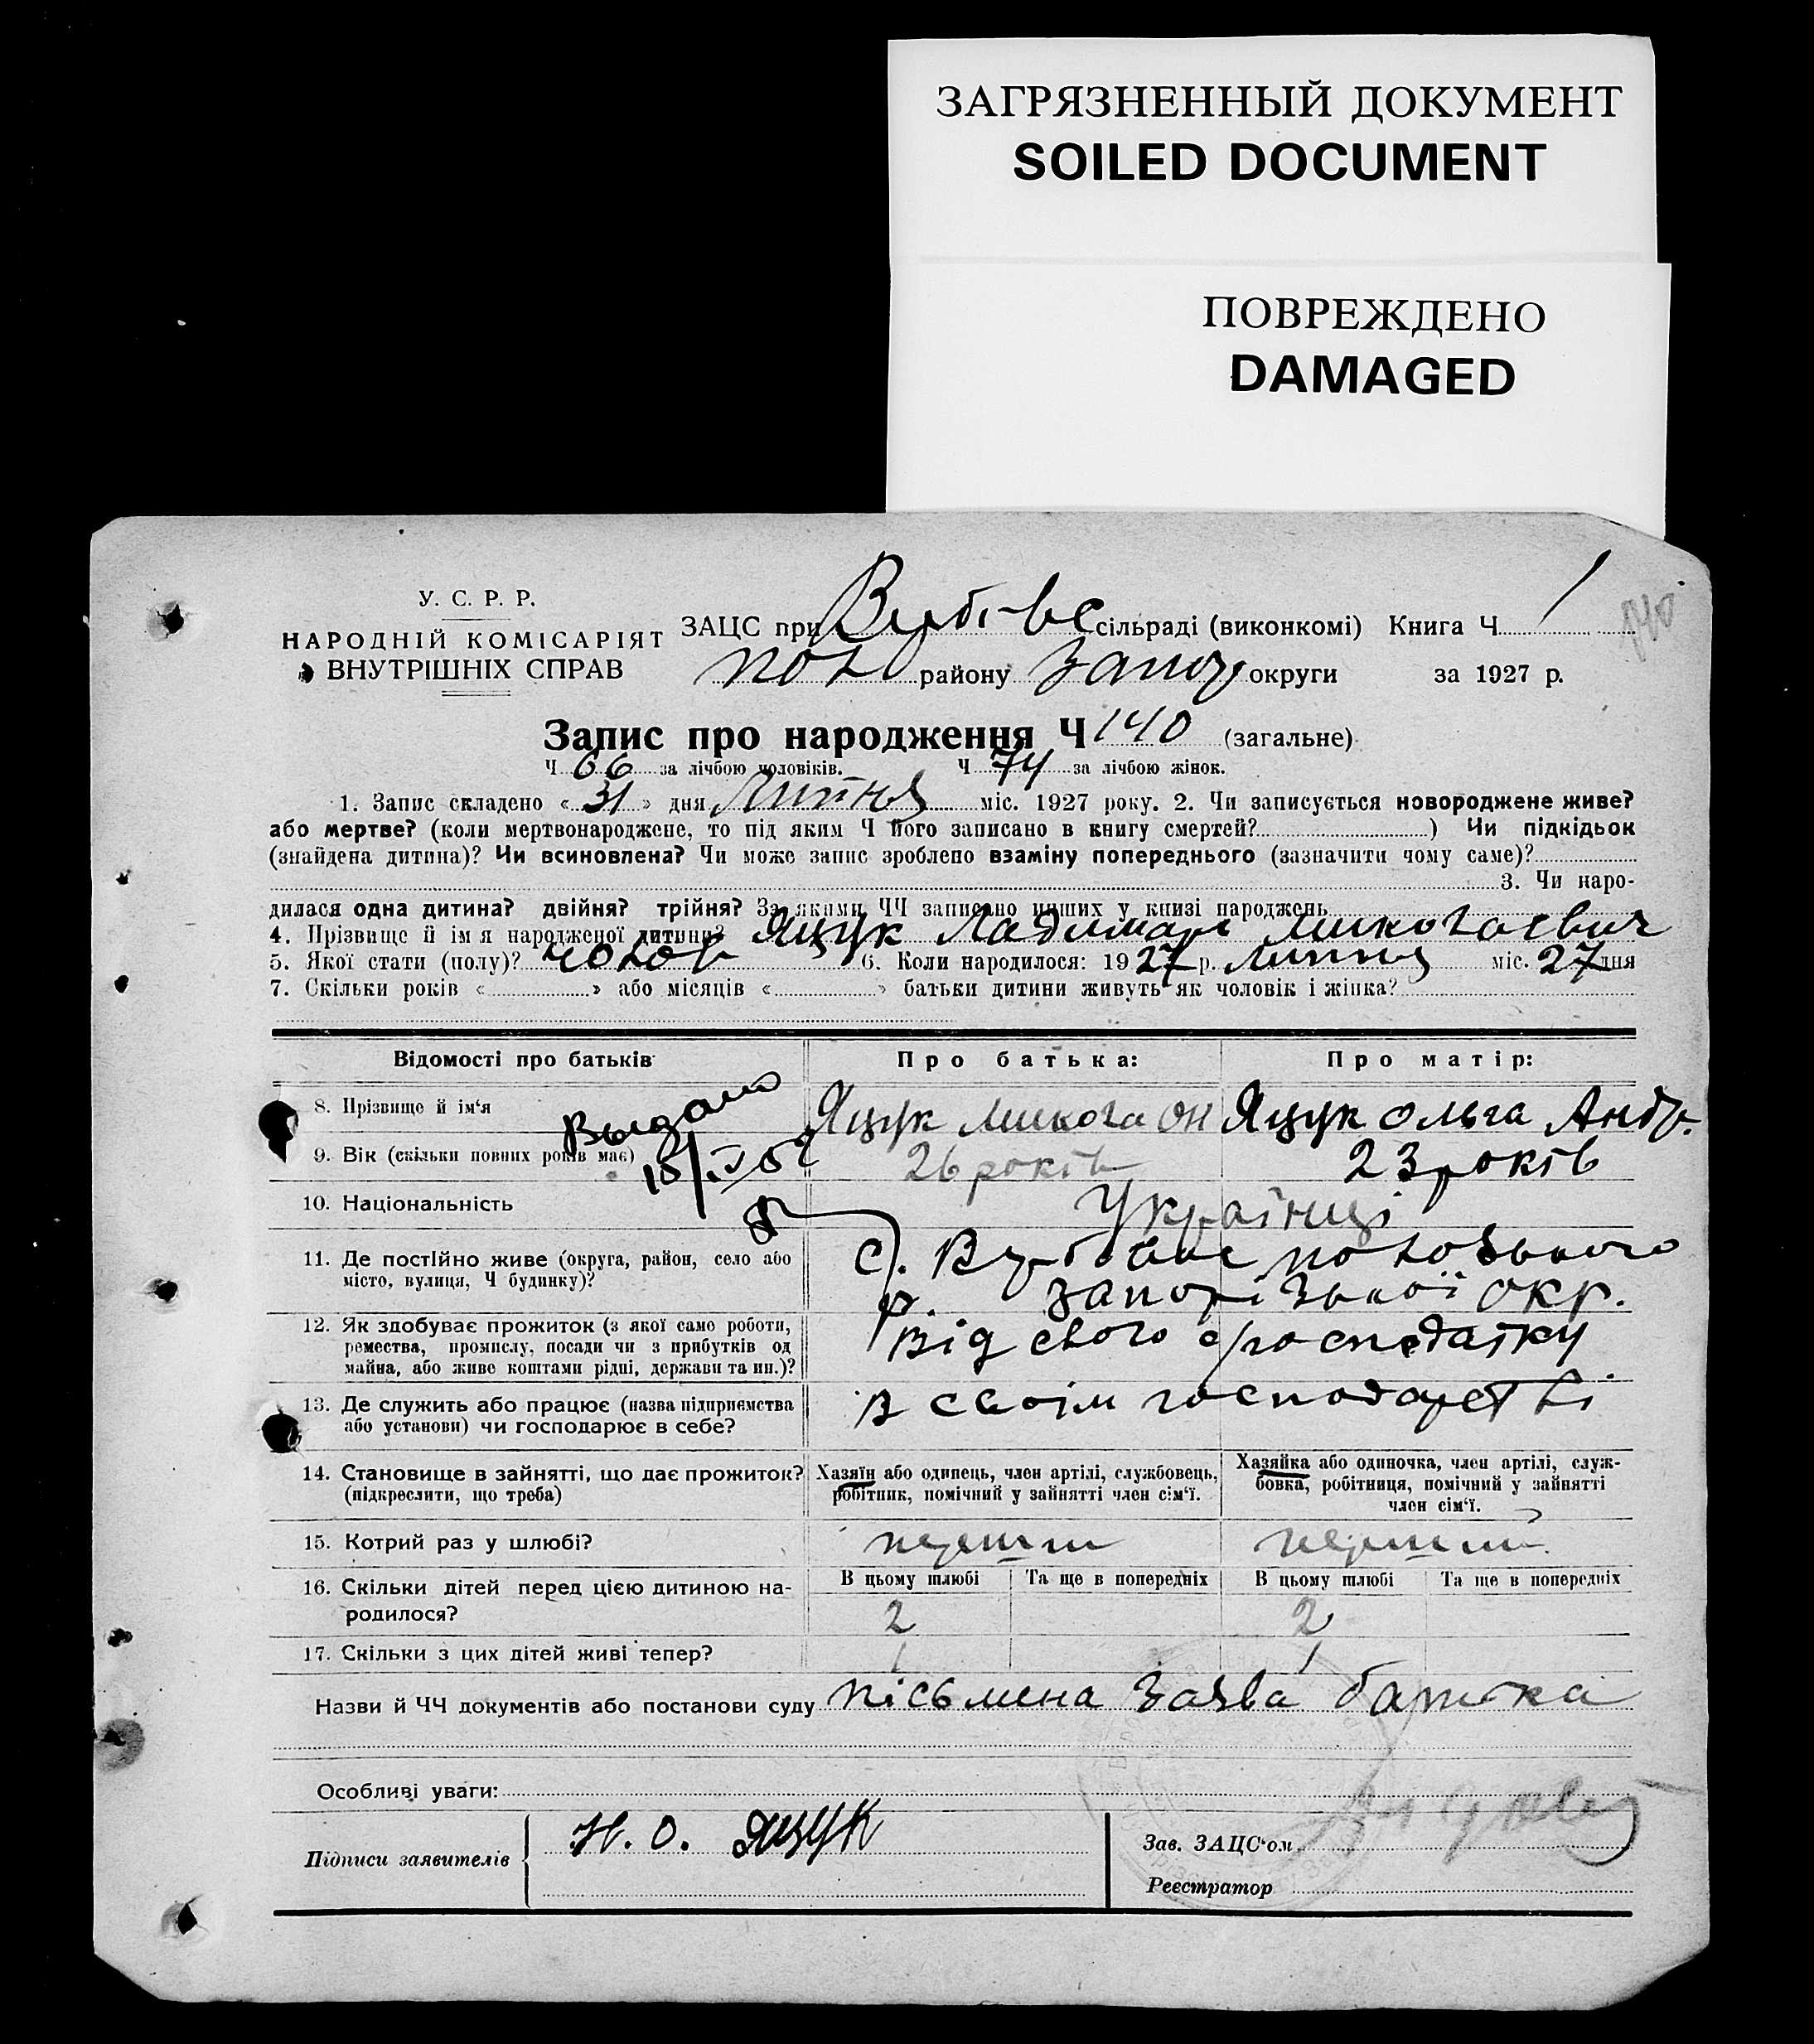 ЗАГРЯЗНЕННЫЙ ДОКУМЕНТ
SOILED DOCUMENT
ПОВРЕЖДЕНО
DAMAGED
У. С. Р. Р.
НАРОДНІЙ КОМІСАРІЯТ
ВНУТРІШНІХ СПРАВ
ЗАЦС при сільраді (виконкомі) Книга Ч. 1
140
пол району Запор округи за 1927 р.
Запис про народження Ч 140 (загальне)
Ч 66 за лічбою чоловіків. Ч 74 за лічбою жінок.
1. Запис складено « 31 » дня Липня міс. 1927 року. 2. Чи записується новороджене живе?
або мертве? (коли мертвонароджене, то під яким Ч його записано в книгу смертей? ) Чи підкідьок
(знайдена дитина)? Чи всиновлена? Чи може запис зроблено взаміну попереднього (зазначити чому саме)?
3. Чи наро-
дилася одна дитина? двійня? трійня? За якими ЧЧ записано инших у книзі народжень
4. Прізвище й ім я народженої дитини? Яцук Ладимарь Миколаевич
5. Якої стати (полу)? 6. Коли народилося: 1927 р. Липня міс. 27 дня
7. Скільки років « » або місяців « » батьки дитини живуть як чоловік і жінка?
Відомості про батьків Про батька: Про матір:
8. Прізвище й ім'я Яцук Микола Он Яцук Ольга Андр.
Выдано
9. Вік (скільки повних років має) 26 років 23 років
10. Національність Українці
11. Де постійно живе (округа, район, село або
місто, вулиця, Ч будинку)?
с. Вербове пологського
р. запорізької окр.
12. Як здобуває прожиток (з якої само роботи,
ремества, промислу, посади чи з прибутків од
майна, або живе коштами рідні, держави та ин.)?
Від свого
13. Де служить або працює (назва підприємства
або установи) чи господарює в себе?
В своїм господарстві
14. Становище в зайнятті, що дає прожиток?
(підкреслити, що треба)
Хазяїн або одинець, член артілі, службовець,
робітник, помічний у зайнятті член сім'ї.
Хазяйка або одиночка, член артілі, служ-
бовка, робітниця, помічний у зайнятті
член сім'ї.
15. Котрий раз у шлюбі? перший перший
16. Скільки дітей перед цією дитиною на-
родилося?
В цьому шлюбі Та ще в попередніх В цьому шлюбі Та ще в попередніх
2 2
17. Скільки з цих дітей живі тепер? 1 1
Назви й ЧЧ документів або постанови суду пісьмена заява батька
Особливі уваги:
Підписи заявителів Н. О. Яцук
Зав. ЗАЦС'ом
Реєстратор